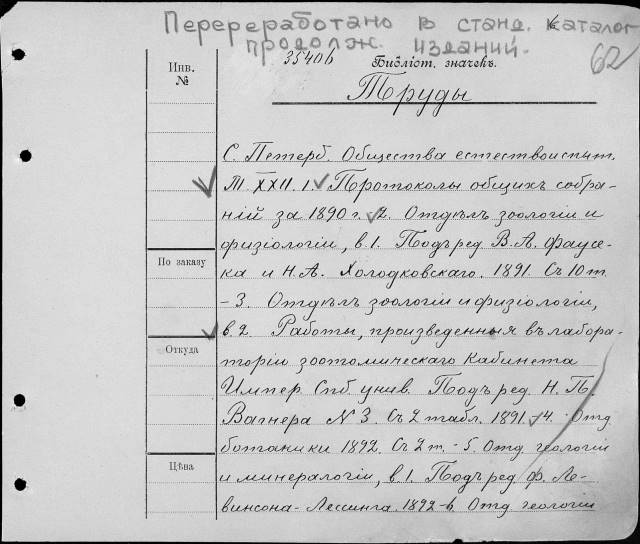 Перереработано в станд. каталог
продолж. изданий.
62
35406
Библіот. значекъ.
Инв.
№
Труды
С. Петерб. Общества естествоиспыт.
Т. XXII. 1. Протоколы общихъ собра-
ній за 1890 г. 2. Отдѣлъ зоологіи и
физіологіи, в. 1. Подъ ред. В. А. Фаусе-
ка и Н. А. Холодковскаго. 1891. Съ 10 т.
По заказу
- 3. Отдѣлъ зоологіи и физіологіи,
в. 2. Работы, произведенныя въ лабора-
Откуда
торіи зоотомическаго Кабинета
Импер. Спб. унив. Подъ ред. Н. П.
Вагнера N 3. Съ 2 табл. 1891. - 4. Отд.
ботаники 1892. Съ 2 т. - 5. Отд. геологіи
Цѣна
и минералогіи, в. 1. Подъ ред. Ф. Ле-
винсона-Лессинга. 1892 - 6. Отд. геологіи